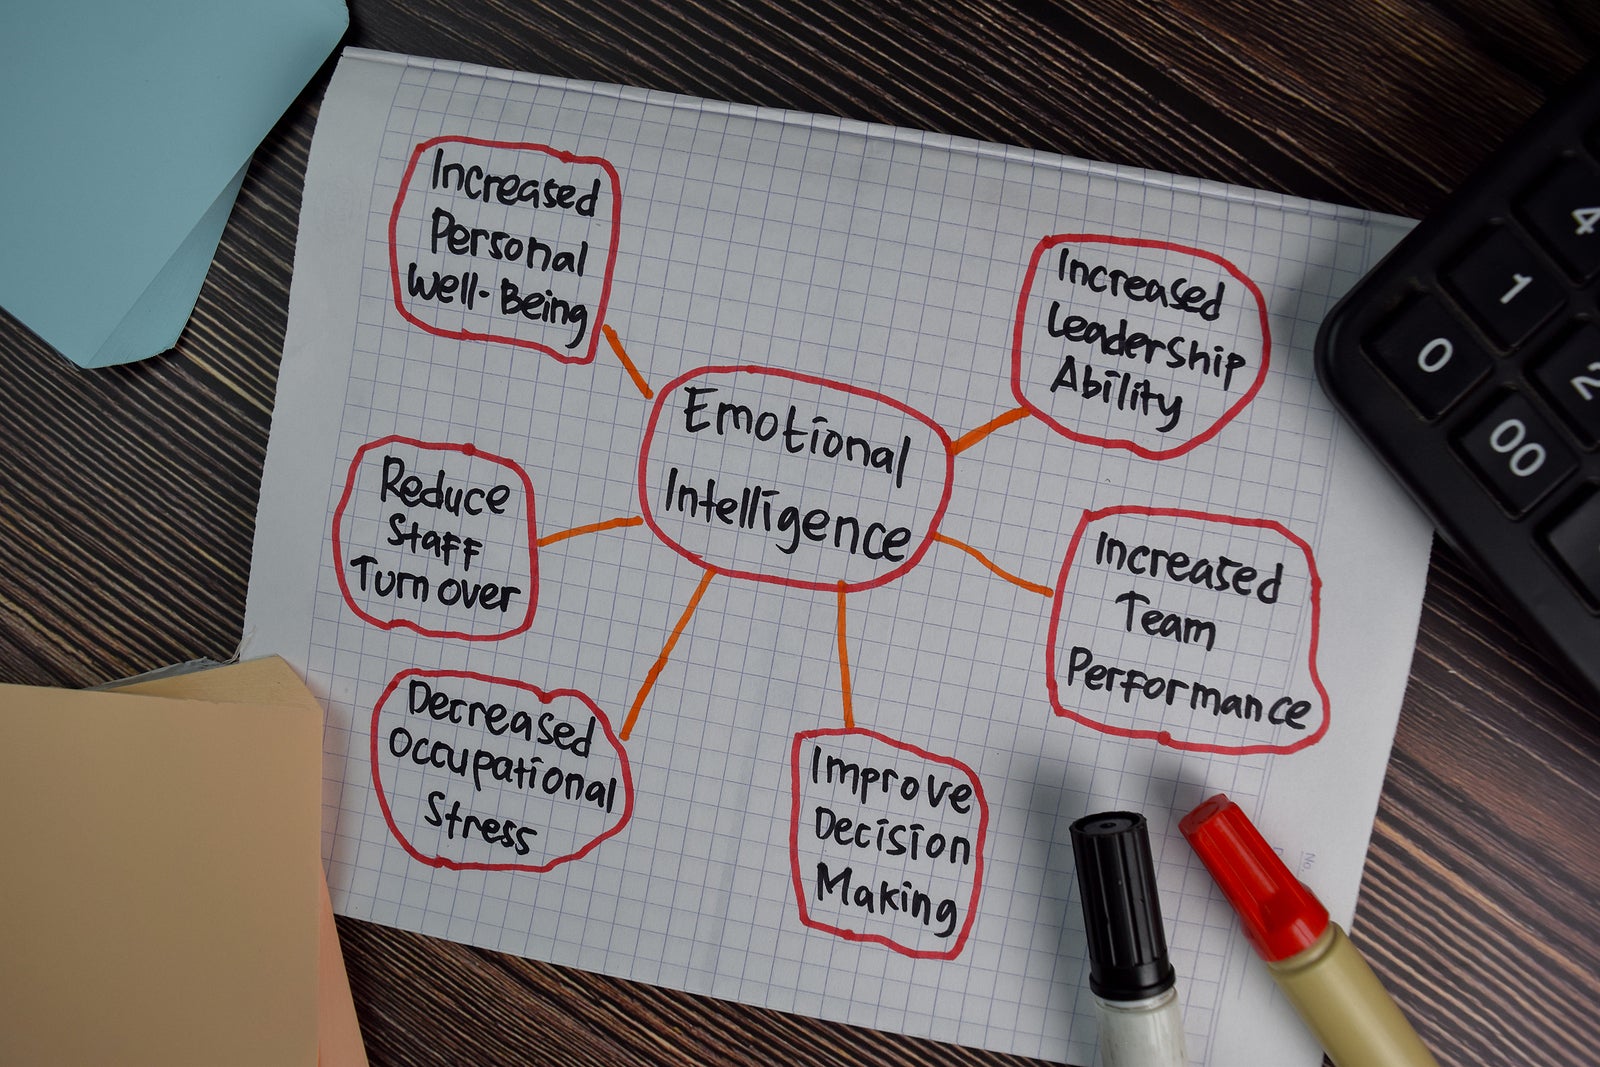 Increased
Personal
Well-Being
Increased
Leadership
Ability
Emotional
Intelligence
Reduce
Staff
Turnover
Increased
Team
Performance
Decreased
Occupational
Stress
Improve
Decision
Making
4
1
0
2
00
No.